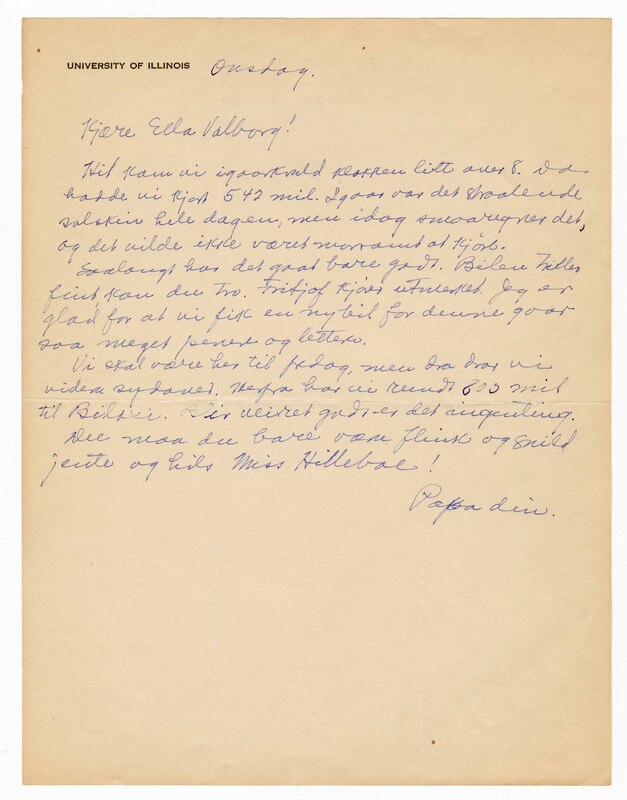 UNIVERSITY OF ILLINOIS Onsdag.
Kjære Ella Valborg!
Hit kom vi igaarkveld klokken litt over 8. Da
hadde vi kjørt 542 mil. Igaar var det straalende
solskin hele dagen, men idag smaaregner det,
og det vilde ikke været morsomt at kjøre.
Saalangt har det gaat bare godt. Bilen triller
fint, kan du tro. Fritjof kjører utmerket. Jeg er
glad for at vi fik en ny bil for denne gaar
saa meget penere og lettere.
Vi skal være her til fredag, men da drar vi
videre sydover. Herfra har vi rundt 600 mil
til Biloxi. Blir veiret godt er det ingenting.
Du maa du bare være flink og snild
jente og hils Miss Hilleboe!
Papa din.